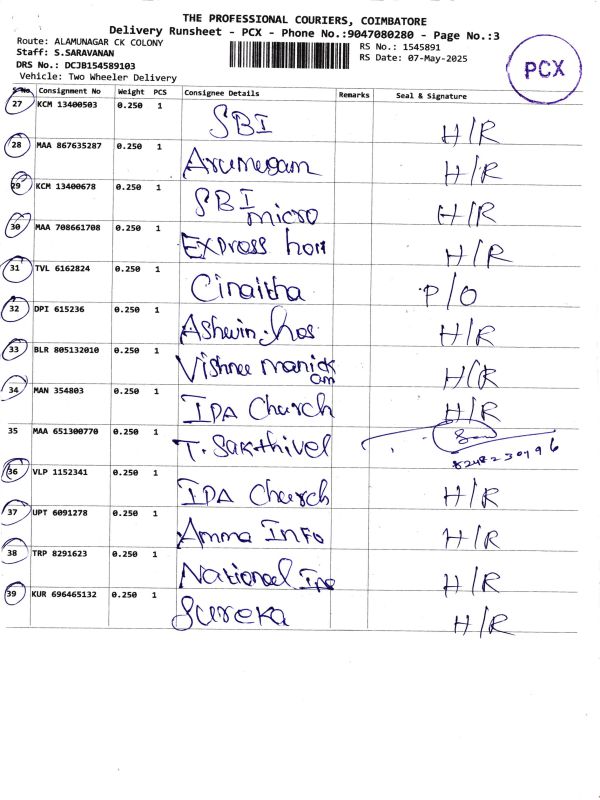 THE PROFESSIONAL COURIERS, COIMBATORE
Delivery Runsheet - PCX - Phone No.:9047080280 - Page No.:3
Route: ALAMUNAGAR CK COLONY
Staff: S.SARAVANAN
DRS No.: DCJB154589103
Vehicle: Two Wheeler Delivery
RS No.: 1545891
RS Date: 07-May-2025
PCX
S.No. Consignment No Weight PCS Consignee Details Remarks Seal & Signature
27 KCM 13400503 0.250 1 SBI H/R
28 MAA 867635287 0.250 1 Arumugam H/R
29 KCM 13400678 0.250 1 SBI micro H/R
30 MAA 708661708 0.250 1 Express H/R
31 TVL 6162824 0.250 1 P/O
32 DPI 615236 0.250 1 Ashwin.hos H/R
33 BLR 805132010 0.250 1 Vishnu manickam H/R
34 MAN 354803 0.250 1 IPA Church H/R
35 MAA 651300770 0.250 1 T. Sakthivel
36 VLP 1152341 0.250 1 IPA Church H/R
37 UPT 6091278 0.250 1 Amma Info H/R
38 TRP 8291623 0.250 1 National H/R
39 KUR 696465132 0.250 1 Sureka H/R